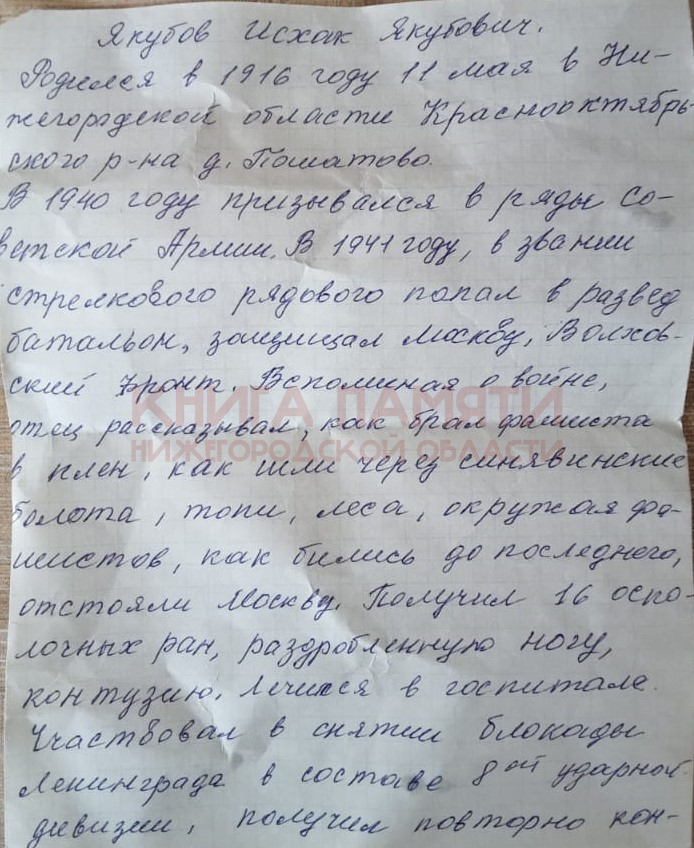 Якубов Исхак Якубович.
Родился в 1916 году 11 мая в Ни-
жегородской области Краснооктябрь-
ского р-на д. Пошатово.
В 1940 году призывался в ряды Со-
ветской Армии. В 1941 году, в звании
стрелкового рядового попал в развед
батальон, защищал Москву, Волхов-
ский фронт. Вспоминая о войне,
КНИГА ПАМЯТИ
отец рассказывал, как брал фашиста
НИЖЕГОРОДСКОЙ ОБЛАСТИ
в плен, как шли через синявинские
болота, топи, леса, окружая фа-
шистов, как бились до последнего,
отстояли Москву. Получил 16 оско-
лочных ран, раздробленную ногу,
контузию. Лечился в госпитале.
Участвовал в снятии блокады
Ленинграда в составе 8ой ударной
дивизии, получил повторно кон-